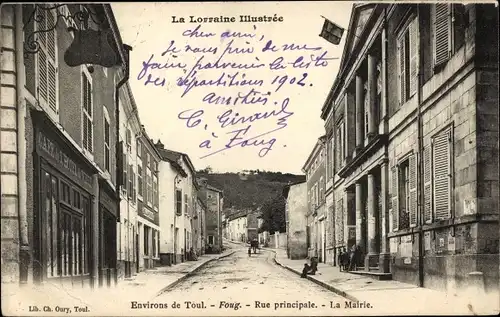 La Lorraine Illustrée
Cher ami,
Je vous prie de me
faire parvenir la liste
des répartitions 1902.
Amitiés
C. Girard
à Foug
CAFÉ
Environs de Toul. - Foug. - Rue principale. - La Mairie.
Lib. Ch. Oury, Toul.